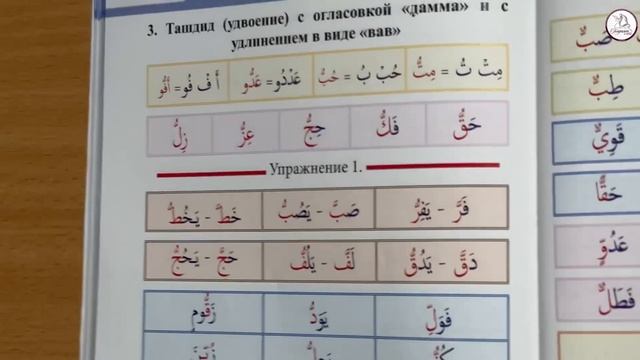 3. Ташдид (удвоение) с огласовкой «дамма» и с
удлинением в виде «вав»
مِتْ تُ = مِتُّ حُبْ بُ = حُبُّ عَدْدُو= عَدُّو أَ فْ فُو= أَفُّو
حَقُّ فَكُّ حِجُّ عِزُّ زِلُّ
Упражнение 1.
فَرَّ - يَفِرُّ صَبَّ - يَصُبُّ خَطَّ - يَخُطُّ
دَقَّ - يَدُقُّ لَفَّ - يَلُفُّ حَجَّ - يَحُجُّ
فَوَلِّ يَوَدُّ زَقُّومٍ
صَبٌّ
طِبٌّ
قَوِيٌّ
حَقًّا
عَدُوٍّ
فَطَلٌّ